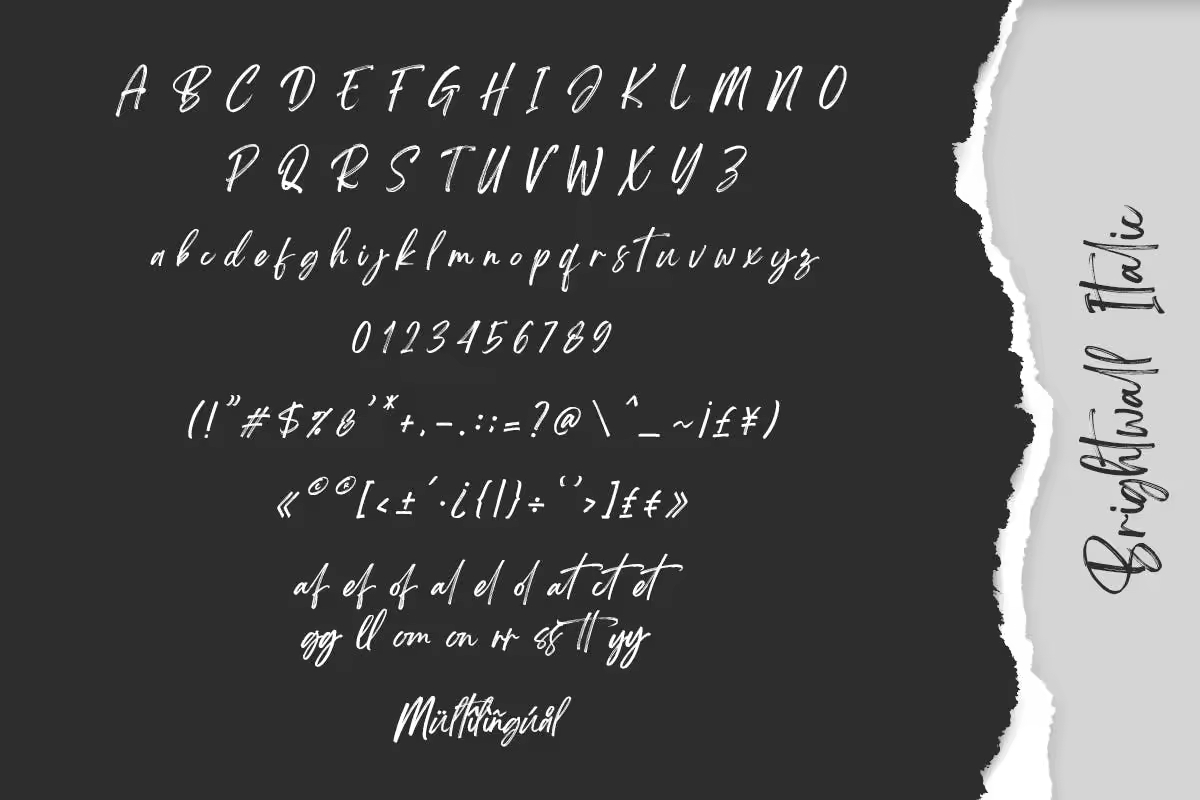 A B C D E F G H I J K L M N O
P Q R S T U V W X Y Z
a b c d e f g h i j k l m n o p q r s t u v w x y z
0 1 2 3 4 5 6 7 8 9
( ! ” # $ % & ’ * + , - . : ; = ? @ \ ^ _ ~ ¡ £ ¥ )
« © ® [ < ± ´ · ¿ { | } ÷ ‘ ’ > ] £ € »
af ef of al el ol at ct et
gg ll om on rr ss tt yy
Brightwall Italic